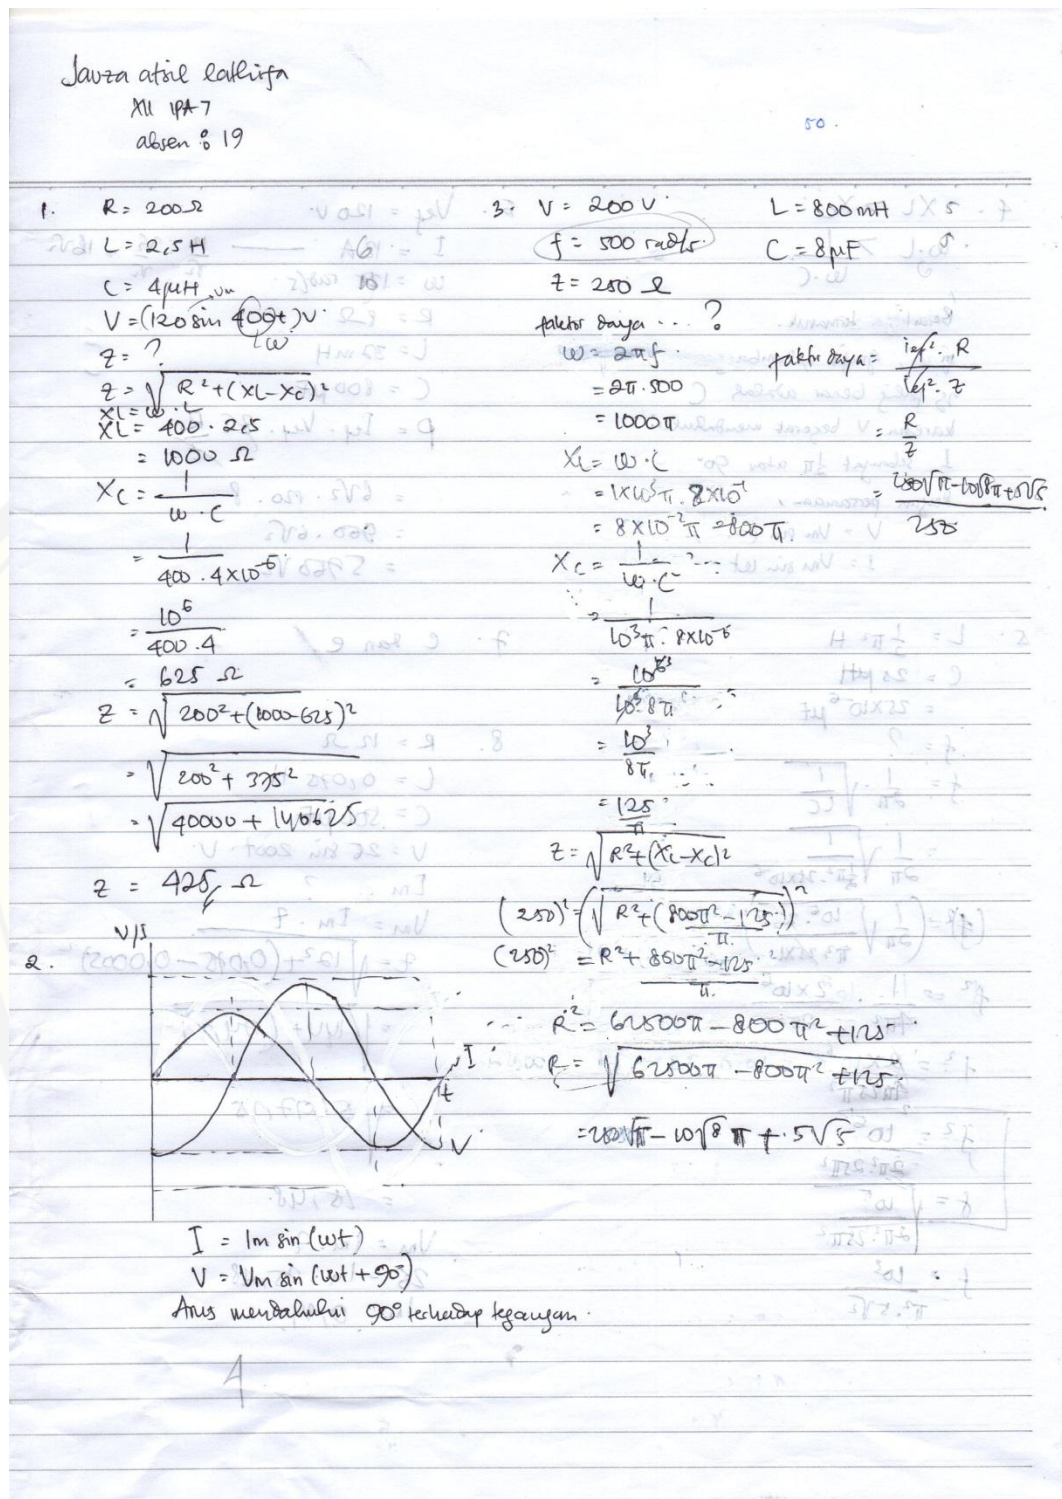 Jauza atsil lathifa
XII IPA-7
absen : 19
50.
1. R = 200 Ω
L = 2,5 H
C = 4 μH
Vm
V = (120 sin 400t) V.
ω
Z = ?
Z = √R² + (XL - XC)²
XL = ω . L
XL = 400 . 2,5
= 1000 Ω
XC = 1 / ω . C
= 1 / 400 . 4 x 10⁻⁶
= 10⁶ / 400 . 4
= 625 Ω
Z = √200² + (1000-625)²
= √200² + 375²
= √40000 + 140625
Z = 425 Ω
2. V/I
I
t
V
I = Im sin (ωt)
V = Vm sin (ωt + 90°)
Arus mendahului 90° terhadap tegangan.
4
3. V = 200 V.
f = 500 rad/s.
Z = 250 Ω
faktor daya ... ?
ω = 2πf.
= 2π . 500
= 1000 π
XL = ω . C
= 1x10³π . 8x10⁻¹
= 8 x 10⁻² π = 800 π.
XC = 1 / ω . C
= 1 / 10³π . 8x10⁻⁶
= 10⁶ ³ / 10³ 8π
= 10³ / 8π
= 125 / π
Z = √R² + (XL - XC)²
(250)² = (√R² + (800π² - 125 / π))²
(250)² = R² + 800π² - 125 / π
R² = 62500π - 800π² + 125
R = √62500π - 800π² + 125
= 250√π - 10√8 π + 5√5
L = 800 mH
C = 8 μF
faktor daya = ief² . R / ief² . Z
= R / Z
= 250√π - 10√8π + 5√5 / 250